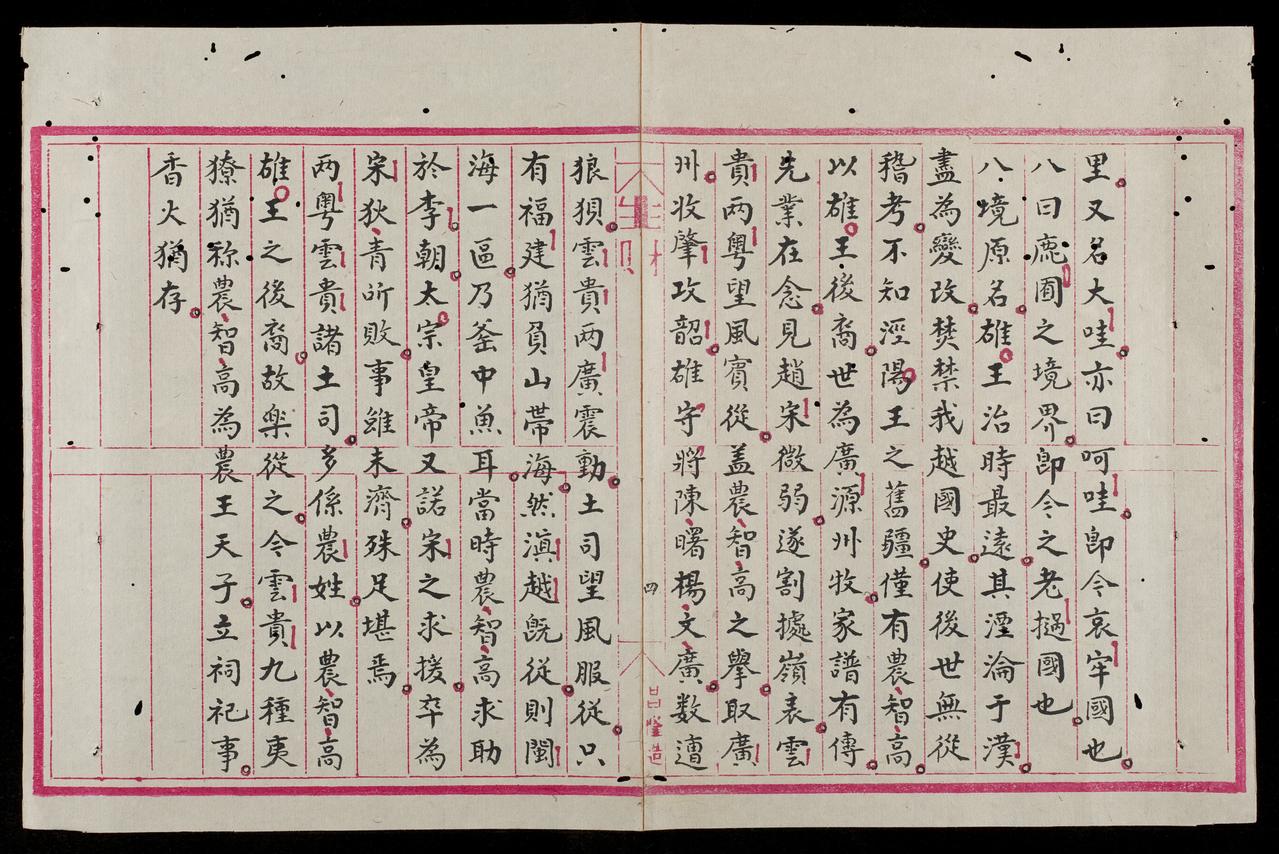 里又名大哇亦曰呵哇即今哀牢國也
八曰鹿囿之境界即今之老撾國也
八境原名雄王治時最遠其湮淪于漢
盡為變改焚禁我越國史使後世無從
稽考不知涇陽王之舊疆僅有農智高
以雄王後裔世為廣源州牧家譜有傳
先業在念見趙宋微弱遂割據嶺表雲
貴两粤望風賓從盖農智高之舉取廣
州收肇攻韶雄守將陳曙楊文廣数遭
四
狼狽雲貴两廣震動土司望風服從只
有福建猶負山帶海然滇越既從則閩
海一區乃釜中魚耳當時農智高求助
於李朝太宗皇帝又諾宋之求援卒為
宋狄青所敗事雖未濟殊足堪焉
两粤雲貴諸土司多係農姓以農智高
雄王之後裔故樂從之今雲貴九種夷
獠猶称農智高為農王天子立祠祀事
香火猶存